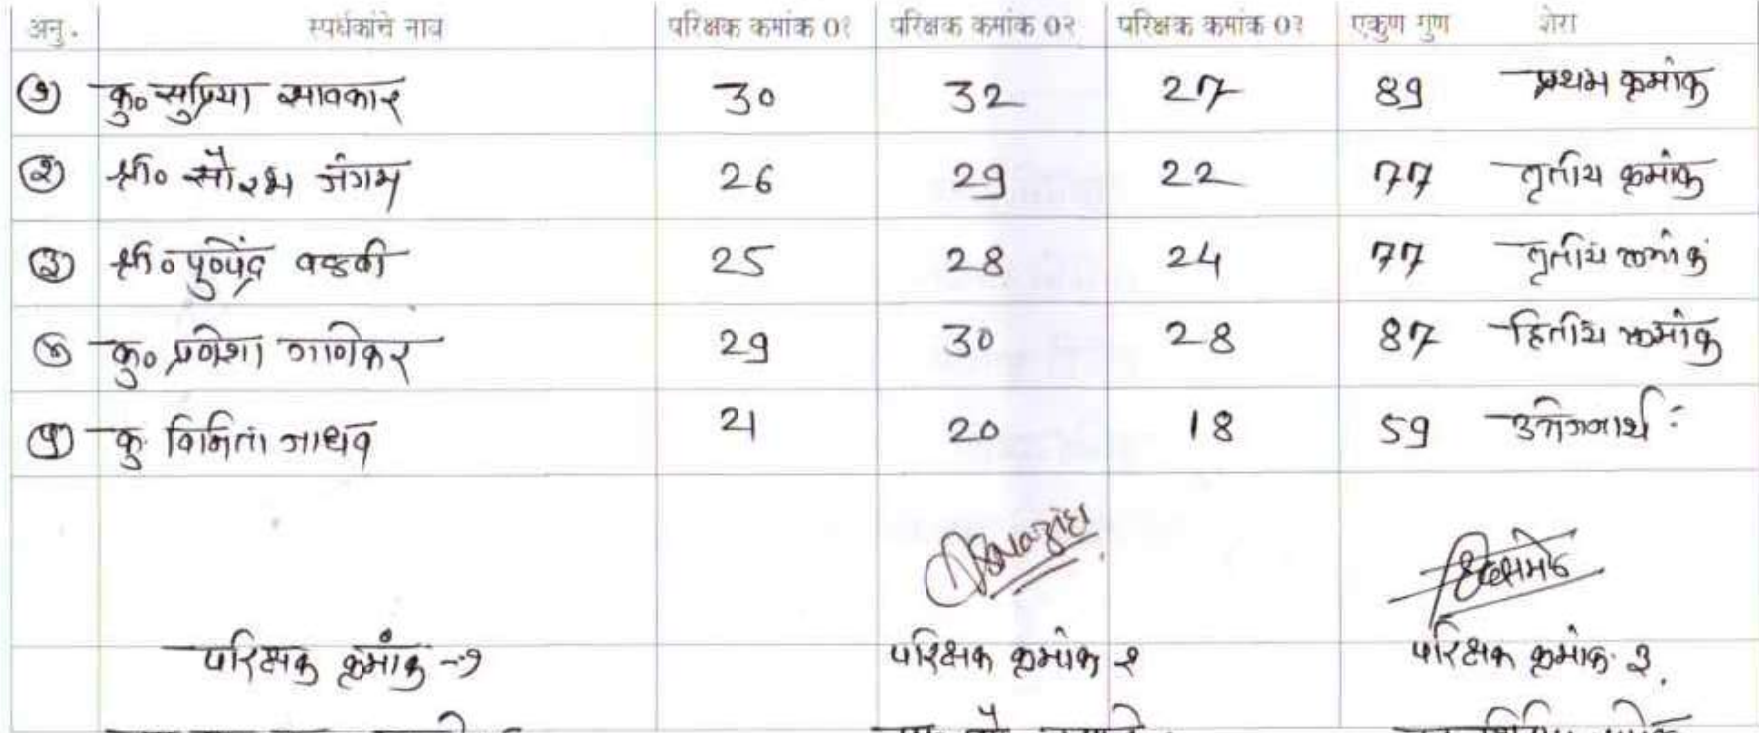 अनु. स्पर्धकांचे नाव परिक्षक कमांक 0१ परिक्षक कमांक 0२ परिक्षक कमांक 0३ एकुण गुण शेरा
१ कु० सुप्रिया सावकार 30 32 27 89 प्रथम क्रमांक
२ श्री० सौरभ जंगम 26 29 22 77 तृतीय क्रमांक
३ श्री० 25 28 24 77 तृतीय क्रमांक
४ कु० 29 30 28 87 द्वितीय क्रमांक
५ कु. जाधव 21 20 18 59 उत्तेजनार्थ
परिक्षक क्रमांक - १ परिक्षक क्रमांक २ परिक्षक क्रमांक ३.